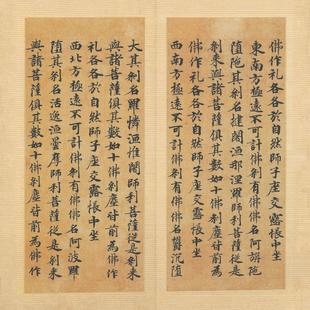 佛作礼各各於自然師子座交露帳中坐
東南方極遠不可計佛剎有佛佛名阿旃陁
墮陁其剎名揵闍洹那涅羅師利菩薩從是
剎來與諸菩薩俱其數如十佛剎塵皆前為
佛作礼各各於自然師子座交露帳中坐
西南方極遠不可計佛剎有佛佛名欝沉墮
大其剎名羅憐洹惟闍師利菩薩從是剎來
與諸菩薩俱其數如十佛剎塵皆前為佛作
礼各各於自然師子座交露帳中坐
西北方極遠不可計佛剎有佛佛名阿波羅
墮其剎名活逸洹曇摩師利菩薩從是剎來
與諸菩薩俱其數如十佛剎塵皆前為佛作